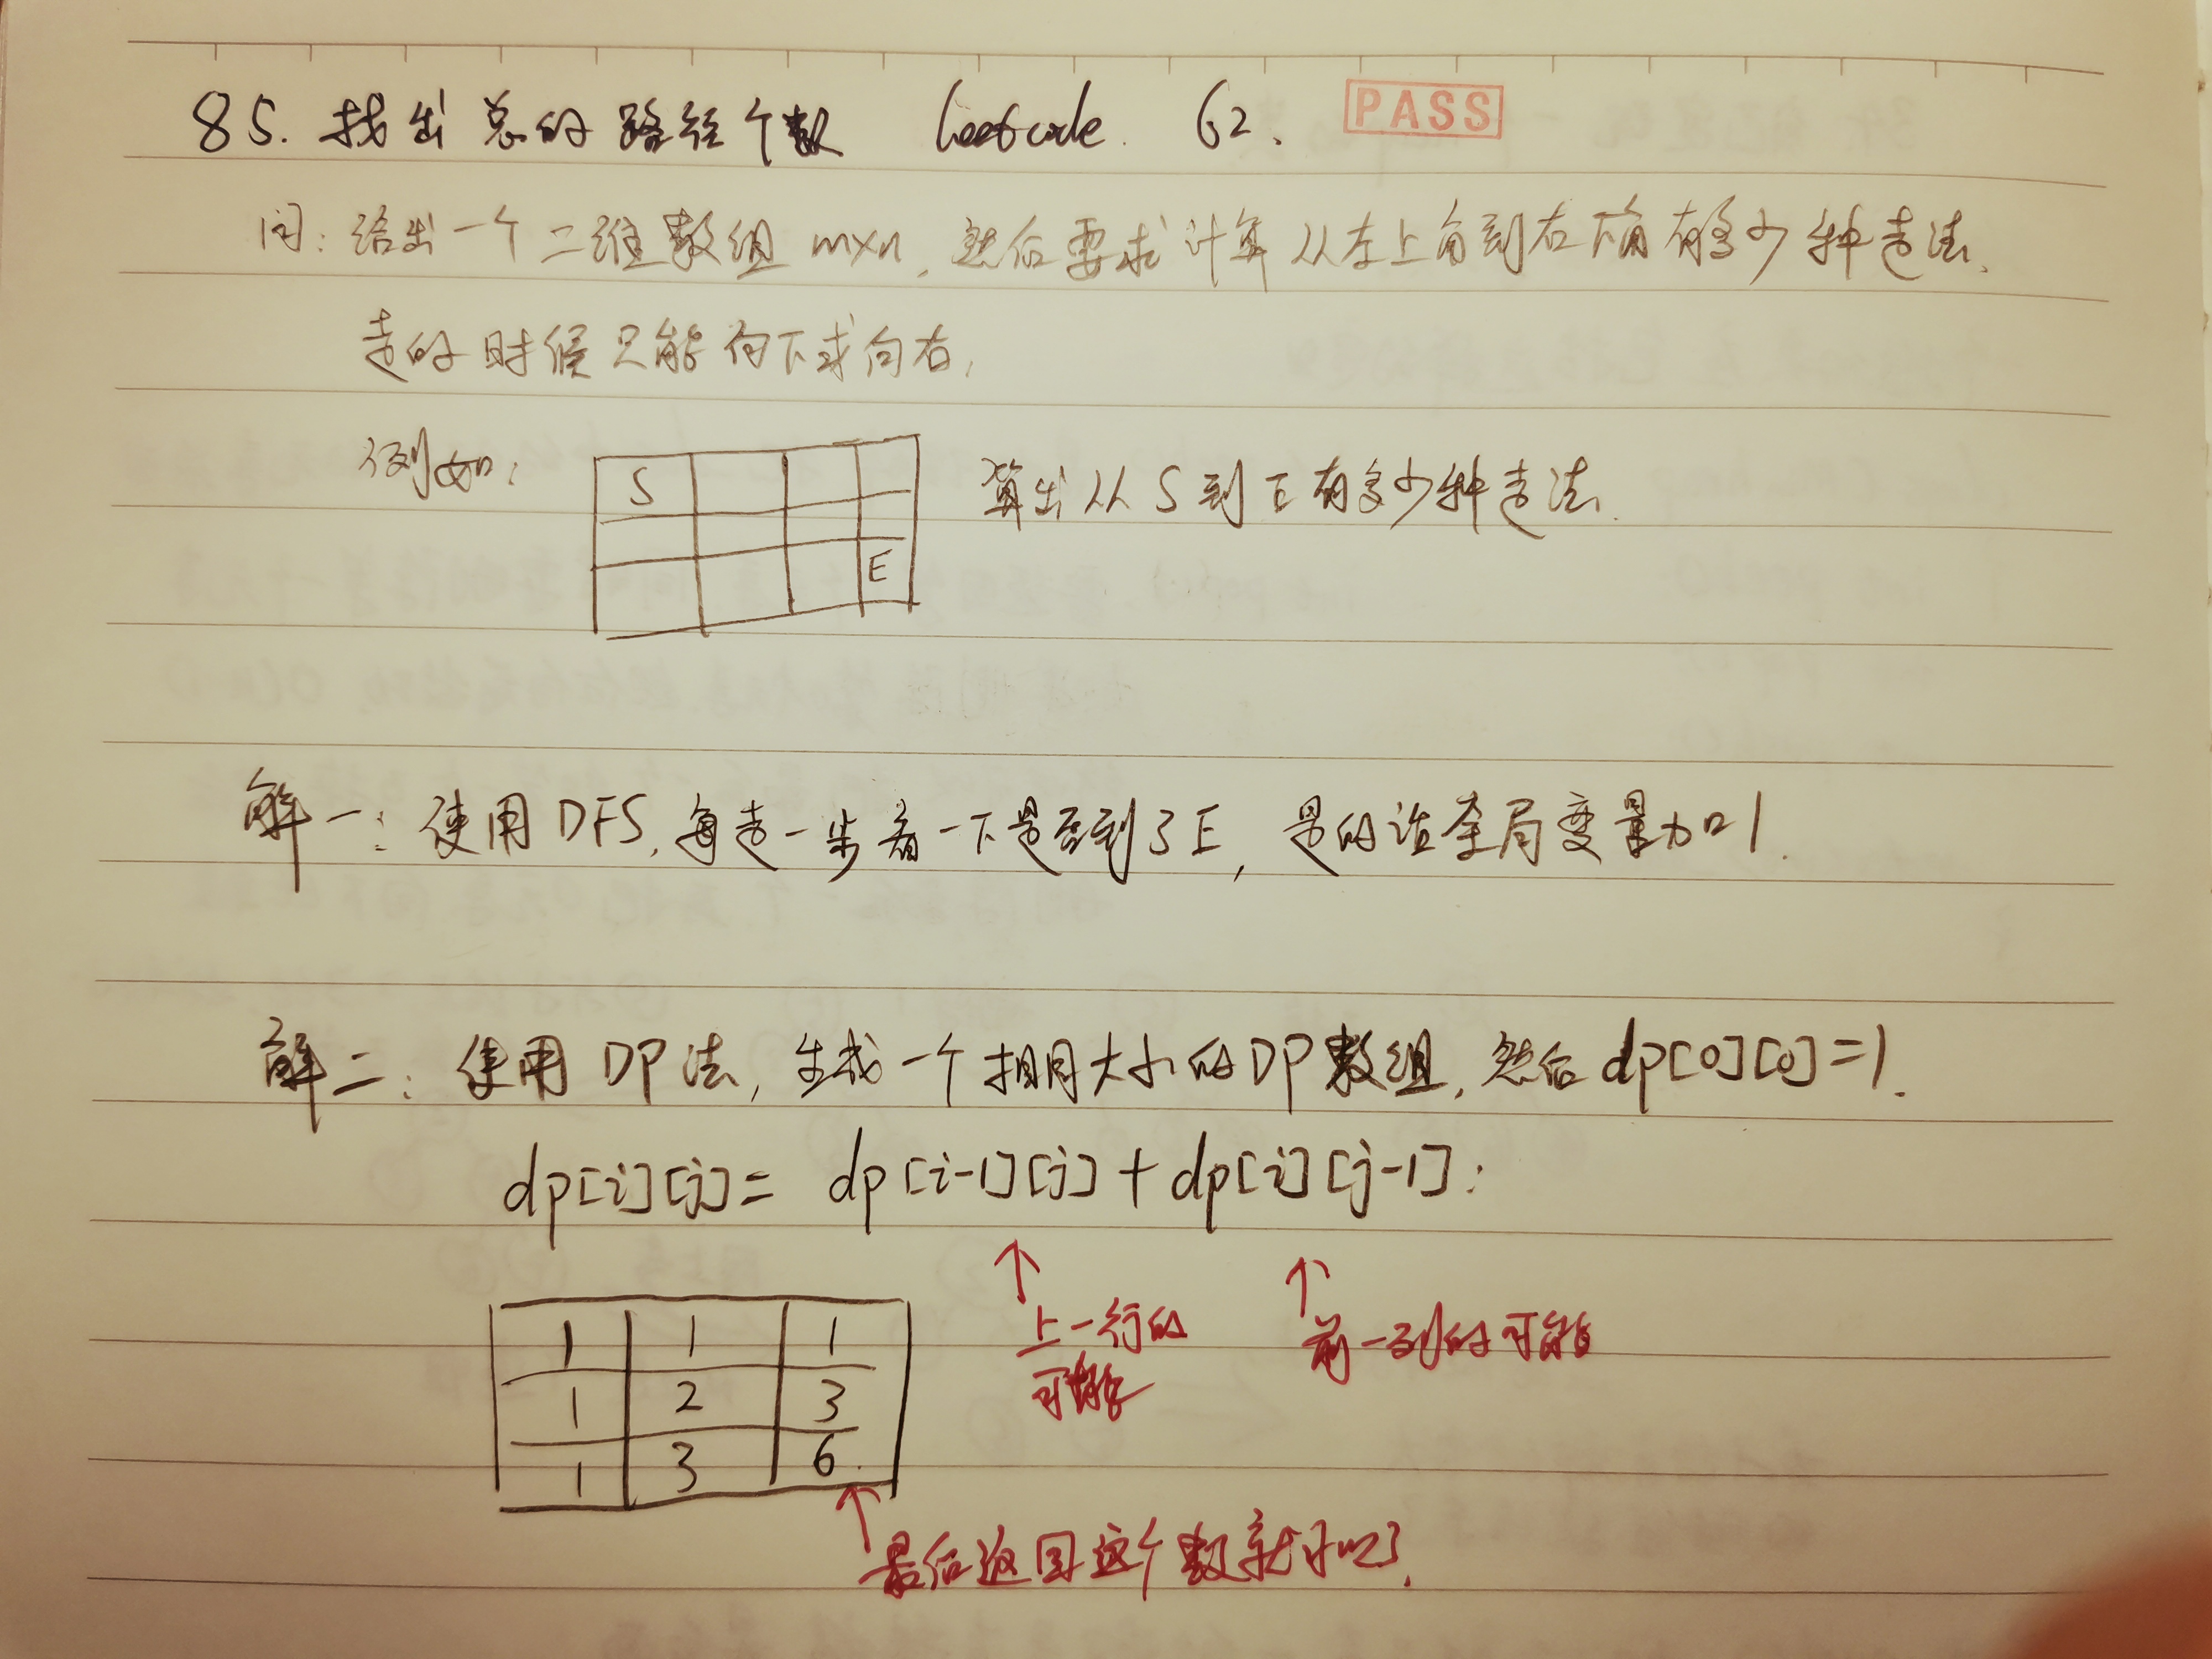 85. 找出总的路径个数 leetcode 62. PASS
问: 给出一个二维数组 m×n, 然后要求计算从左上角到右下角有多少种走法.
走的时候只能向下或向右,
例如: 算出从S到E有多少种走法.
S
E
解一: 使用DFS, 每走一步看一下是否到了E, 是的话全局变量加1.
解二: 使用DP法, 生成一个相同大小的DP数组, 然后dp[0][0]=1.
dp[i][j] = dp[i-1][j] + dp[i][j-1];
↑ ↑
上一行的可能
前一列的可能
1 1 1
1 2 3
1 3 6
↑
最后返回这个数就可以了.